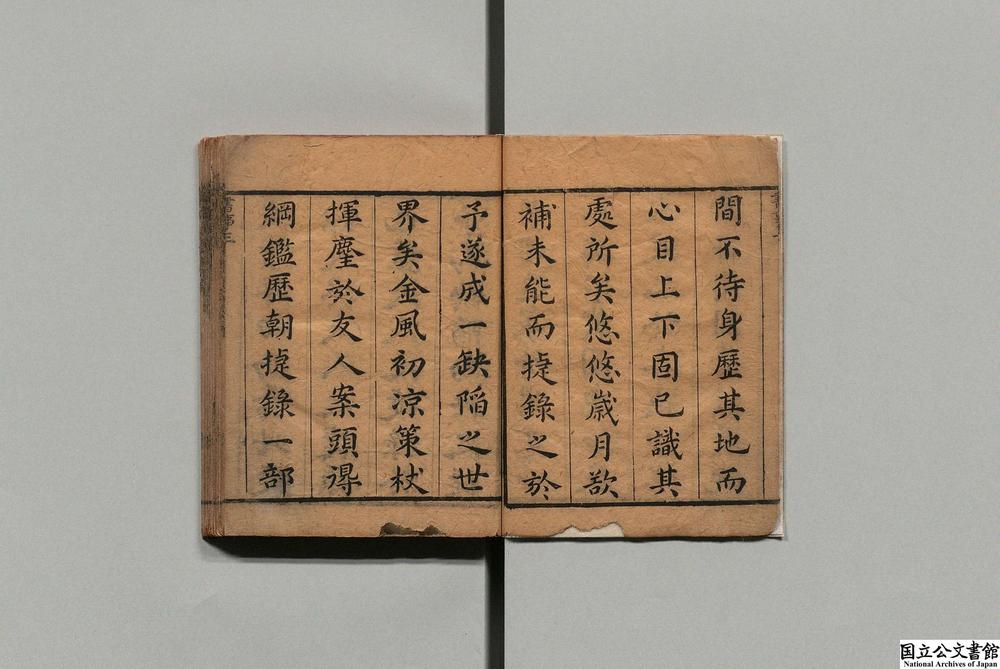 間不待身歷其地而
心目上下固已識其
處所矣悠悠歲月欲
補未能而㨗錄之於
予遂成一缺陷之世
界矣金風初凉策杖
揮麈於友人案頭得
綱鑑歷朝㨗錄一部
国立公文書館
National Archives of Japan